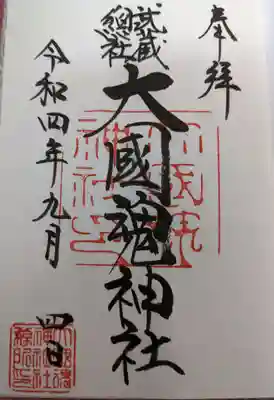 奉拝
武蔵
總社
大國魂神社
令和四年九月
四日